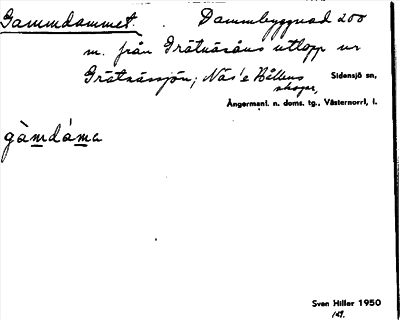 Gammdammet. Dammbyggnad 200
m. från Grätnäsåns utlopp ur
Grätnässjön; Näs'e Hållens
skogar, Sidensjö sn,
Ångermanl. n. doms. tg., Västernorrl. l.
gàmdáma
Sven Hiller 1950